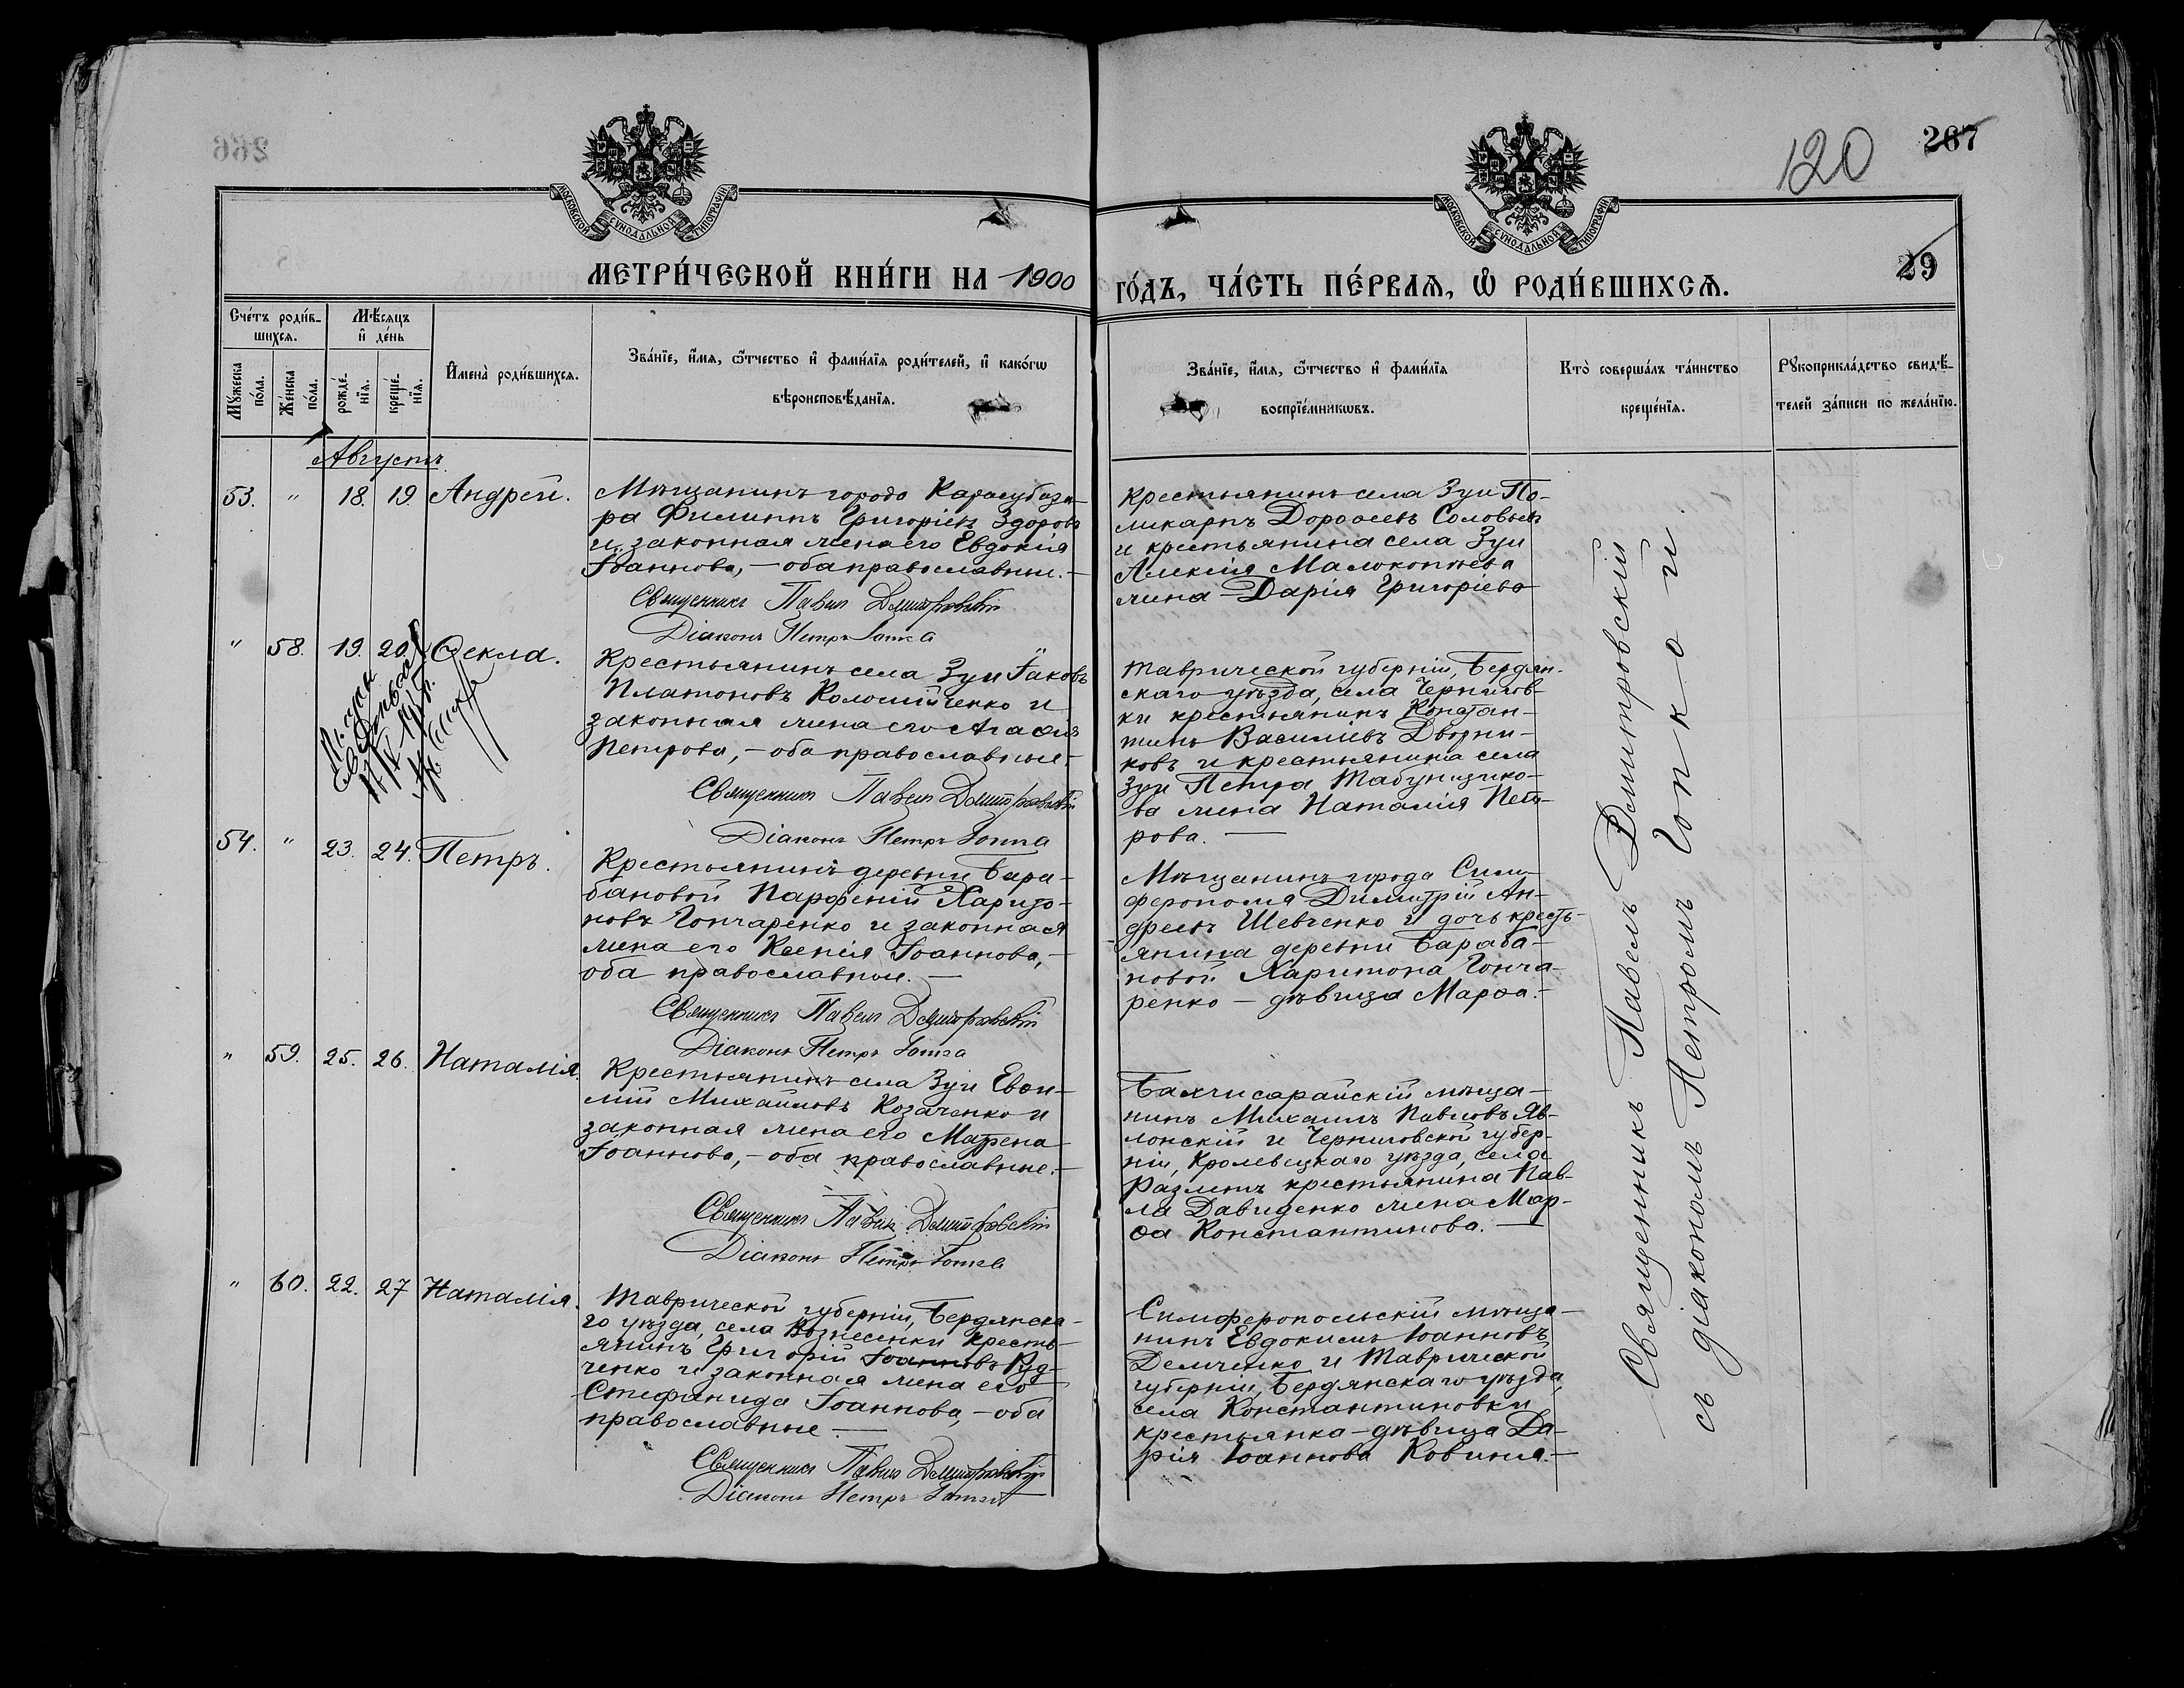 266
120
267
МОСКОВСКОЙ СѴНОДАЛЬНОЙ ТИПОГРАФІИ
МОСКОВСКОЙ СѴНОДАЛЬНОЙ ТИПОГРАФІИ
29
МЕТРИ́ЧЕСКОЙ КНИ́ГИ НА 1900
ГО́ДЪ, ЧА́СТЬ ПЕ́РВАѦ, Ѡ҆ РОДИ́ВШИХСѦ.
Сче́тъ роди́в-
шихсѧ.
Мꙋ́жеска
по́ла.
Же́нска
по́ла.
Мѣ́сяцъ
и҆ де́нь
рожде́-
нїѧ.
креще́-
нїѧ.
И҆мена̀ роди́вшихсѧ.
Зва́нїе, и҆́мѧ, ѻ҆́тчество и҆ фами́лїѧ роди́телей, и҆ како́гѡ
вѣроисповѣ́данїѧ.
Зва́нїе, и҆́мѧ, ѻ҆́тчество и҆ фами́лїѧ
воспрїе́мникѡвъ.
Кто̀ соверша́лъ та́инство
креще́нїѧ.
Рꙋкоприкла́дство свидѣ́-
телей за́писи по жела́нїю.
Августъ.
53. " 18. 19. Андрей.
Мѣщанинъ города Карасубаза-
ра Филиппъ Григоріевъ Здоровъ
и законная жена его Евдокія
Іоаннова, – оба православные. –
Священникъ Павелъ Дмитровскій
Діаконъ Петръ Гопка
Крестьянинъ села Зуи По-
ликарпъ Дороѳеевъ Соловьевъ
и крестьянина села Зуи
Алексія Малокопьева
жена Дарія Григорьева
" 58. 19. 20. Ѳекла.
Крестьянинъ села Зуи Іаковъ
Платоновъ Коломійченко и
законная жена его Агаѳія
Петрова, – оба православные. –
Священникъ Павелъ Дмитровскій
Діаконъ Петръ Гопка
Таврической губерніи, Бердян-
скаго уѣзда, села Чернигов-
ки крестьянинъ Констан-
тинъ Василіевъ Дворни-
ковъ и крестьянина села
Зуи Петра Табунщико-
ва жена Наталія Пет-
рова. –
54. " 23. 24. Петръ.
Крестьянинъ деревни Бара-
бановой Парфеній Харито-
новъ Гончаренко и законная
жена его Ксенія Іоаннова, –
оба православные. –
Священникъ Павелъ Дмитровскій
Діаконъ Петръ Гопка
Мѣщанинъ города Сим-
ферополя Димитрій Ан-
дреевъ Шевченко и дочь кресть-
янина деревни Бараба-
новой Харитона Гонча-
ренко – дѣвица Марѳа. –
" 59. 25. 26. Наталія.
Крестьянинъ села Зуи Евѳи-
мій Михайловъ Козаченко и
законная жена его Матрена
Іоаннова, – оба православные. –
Священникъ Павелъ Дмитровскій
Діаконъ Петръ Гопка
Бахчисарайскій мѣща-
нинъ Михаилъ Павловъ Яв-
лонскій и Черниговской губер-
ніи, Кролевецкаго уѣзда, села
Разлетъ крестьянина Пав-
ла Давиденко жена Мар-
ѳа Константинова. –
" 60. 22. 27 Наталія.
Таврической губерніи, Бердянска-
го уѣзда, села Вознесенки кресть-
янинъ Григорій Іоанновъ Руд-
ченко и законная жена его
Стефанида Іоаннова, – оба
православные –
Священникъ Павелъ Дмитровскій
Діаконъ Петръ Гопка
Симферопольскій мѣща-
нинъ Евдокимъ Іоанновъ
Демченко и Таврической
губерніи, Бердянскаго уѣзда,
села Константиновки
крестьянка – дѣвица Да-
рія Іоаннова Ковиня. –
Священникъ Павелъ Дмитровскій
съ діакономъ Петромъ Гопкой.